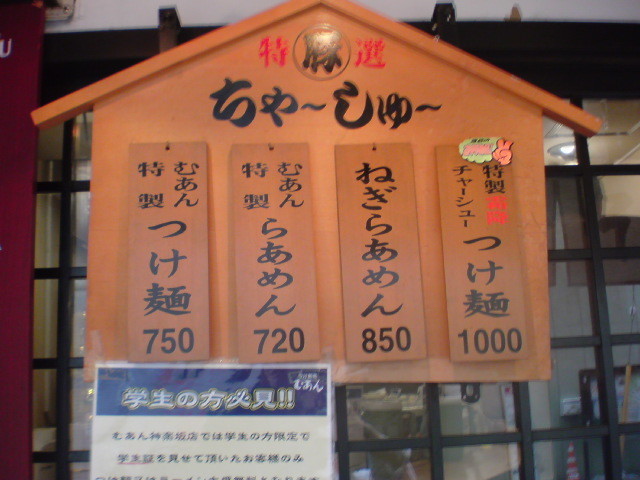 特 豚 選
ちゃ～しゅ～
むあん
特製
つけ麺
750
むあん
特製
らあめん
720
ねぎらあめん
850
特製
チャーシュー
つけ麺
1000
むあん
学生の方必見!!
むあん神楽坂店では学生の方限定で
学生証を見せて頂いたお客様のみ